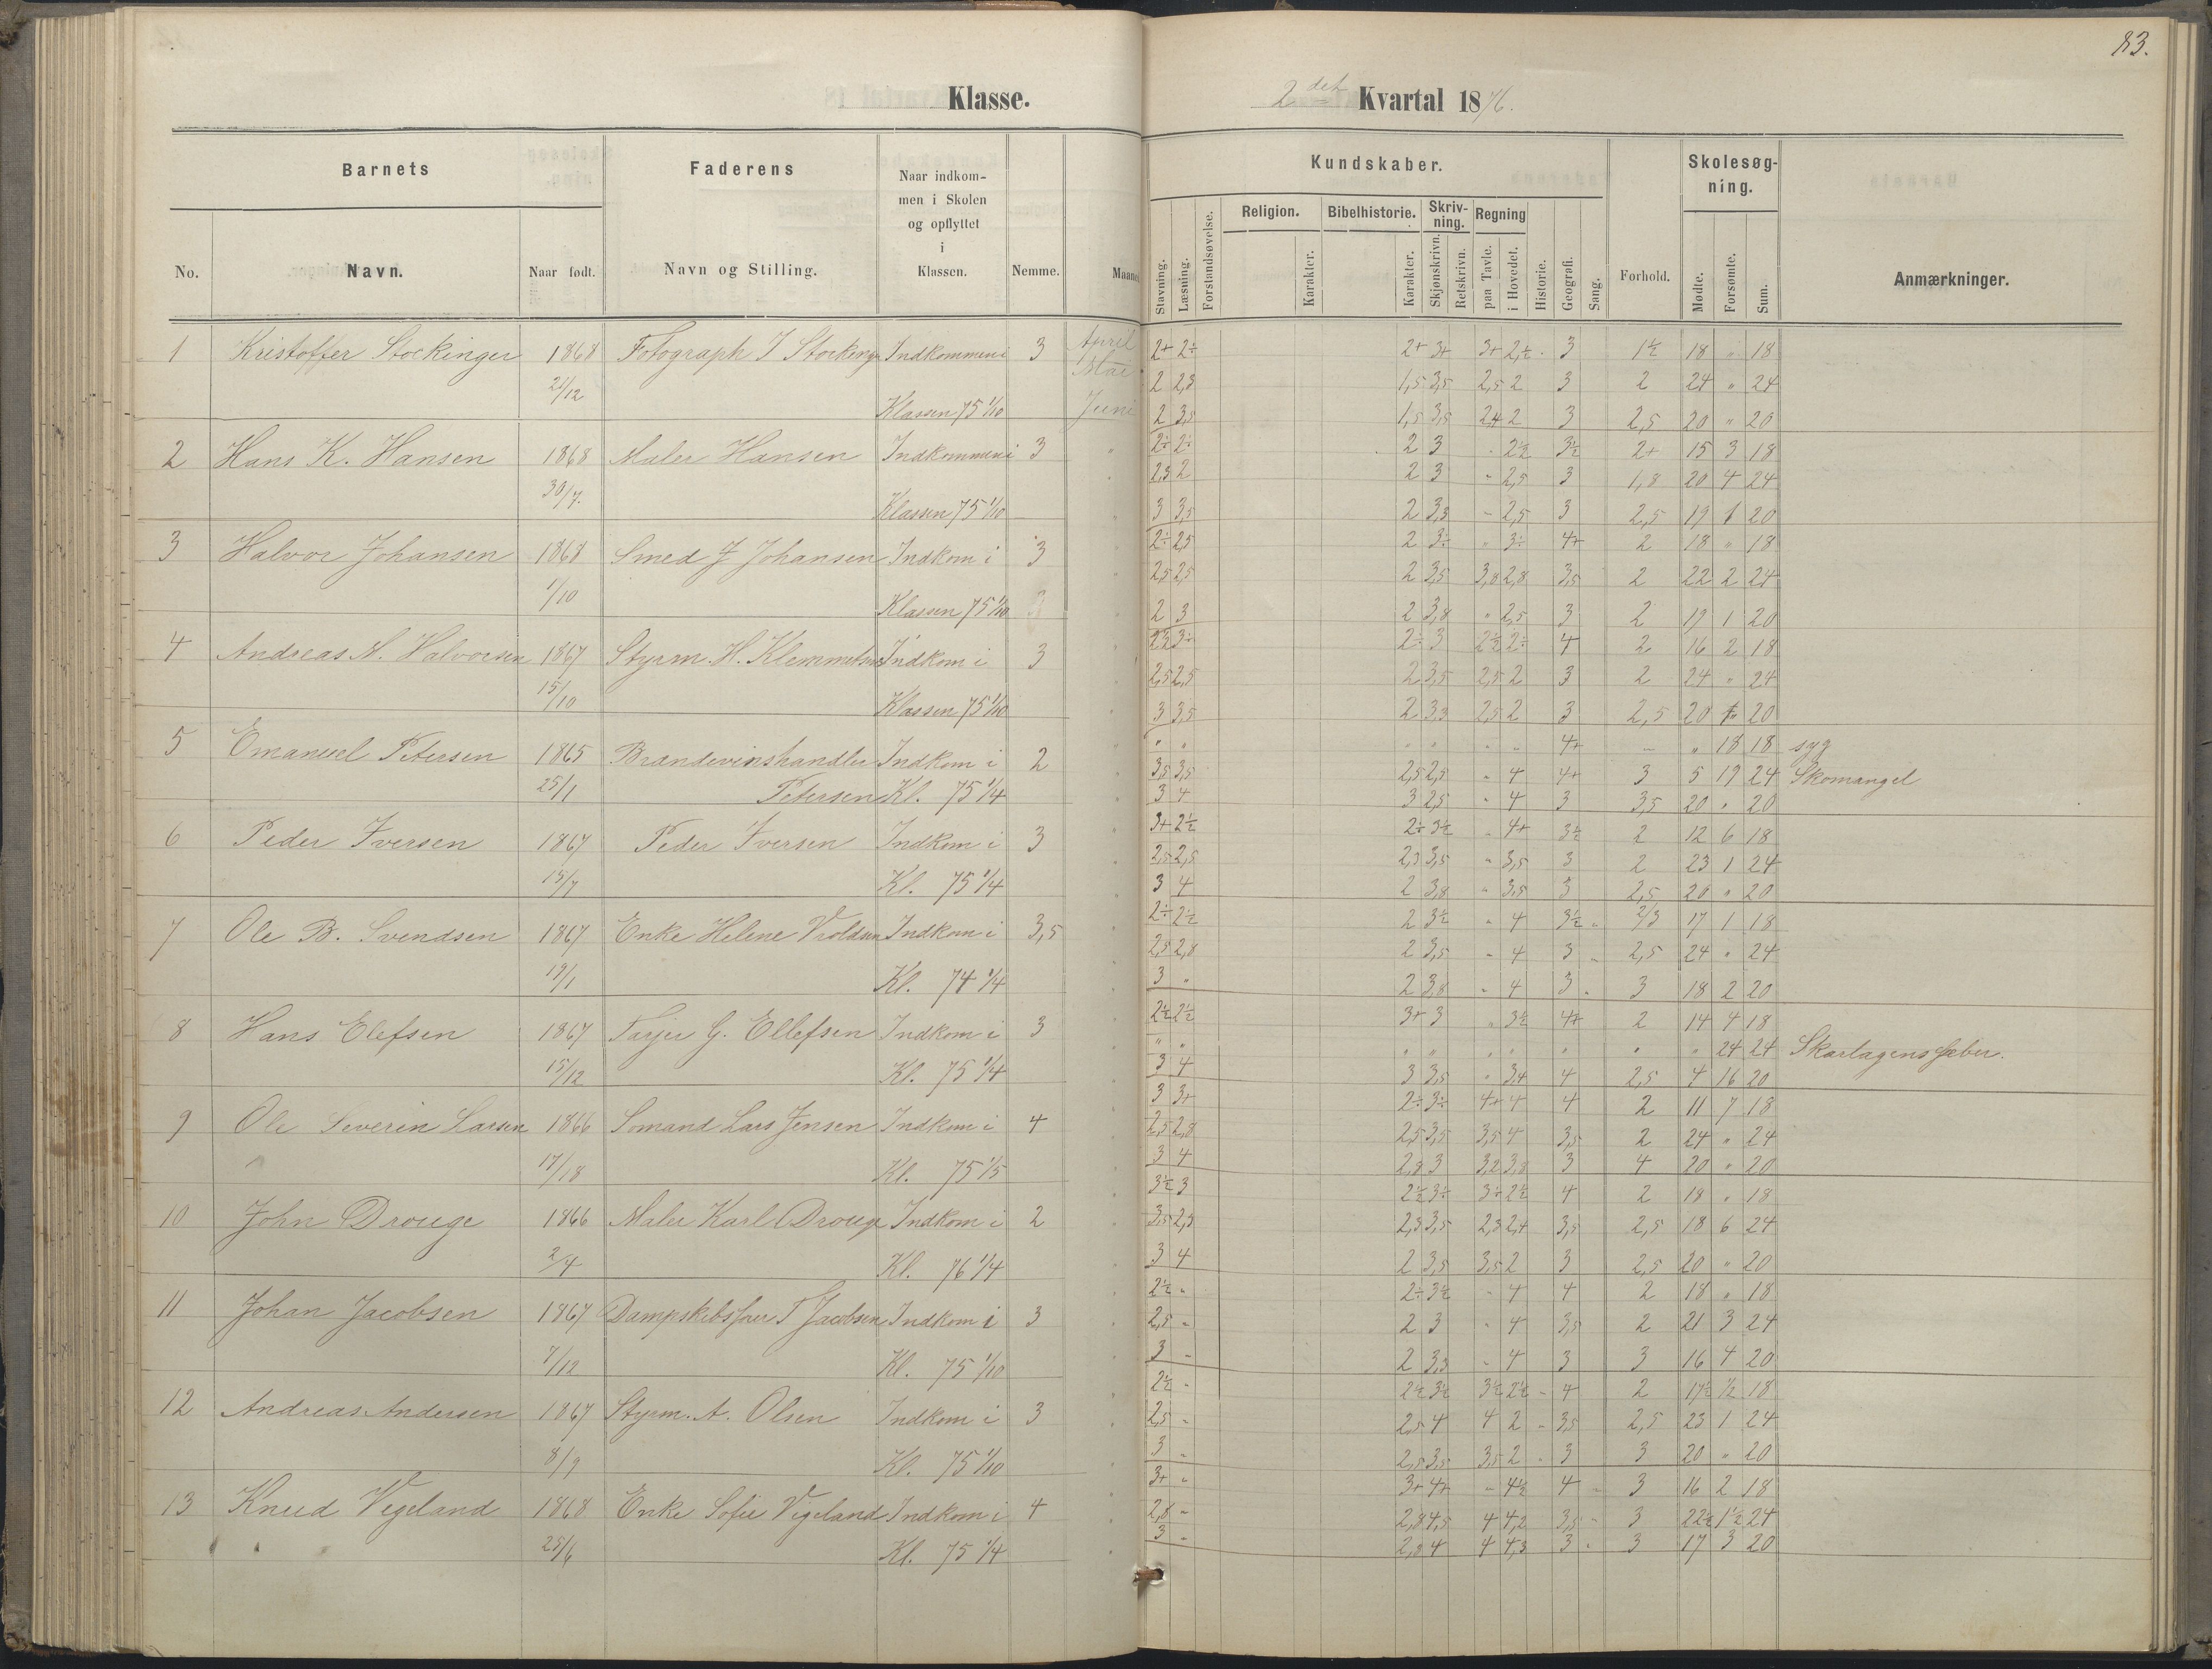 83.
Klasse.
2det Kvartal 1876.
Barnets
Faderens
Naar indkommen i Skolen og opflyttet i Klassen.
Kundskaber.
Skolesøgning.
No. Navn. Naar født. Navn og Stilling. Nemme. Maaned
Stavning. Læsning. Forstandsøvelse. Religion. Karakter. Bibelhistorie. Karakter. Skrivning. Skjønskrivn. Retskrivn. Regning paa Tavle. i Hovedet. Historie. Geografi. Sang. Forhold. Mødte. Forsømte. Sum. Anmærkninger.
1 Kristoffer Stockinger 1868 Fotograph J Stockinger Indkommen i 3 April 2+ 2÷ 2+ 3+ 3+ 2½ 3 1½ 18 " 18
21/12 Mai 2 2,3 1,5 3,5 2,5 2 3 2 24 " 24
Klassen 75 1/10 Juni 2 3,5 1,5 3,5 2,4 2 3 2,5 20 " 20
2 Hans K. Hansen 1868 Maler Hansen Indkommen i 3 2÷ 2÷ 2 3 " 2½ 3½ 2+ 15 3 18
30/7. 2,3 2 2 3 " 2,5 3 1,8 20 4 24
Klassen 75 1/10 3 3,5 2 3,3 " 2,5 3 2,5 19 1 20
3 Halvor Johansen 1868 Smed J Johansen Indkom i 3 2÷ 2,5 2 3÷ " 3÷ 4+ 2 18 " 18
1/10 2,5 2,5 2 3,5 3,8 2,8 3,5 2 22 2 24
Klassen 75 1/10 2 3 2 3,8 " 2,5 3 2 19 1 20
4 Andreas N. Halvorsen 1867 Styrm. H. Klemmetsen Indkom i 3 2½ 3÷ 2÷ 3 2½ 2÷ 4 2 16 2 18
15/10 2,5 2,5 2 3,5 2,5 2 3 2 24 " 24
Klassen 75 1/10 3 3,5 2 3,3 2,5 2 3 2,5 20 " 20
5 Emanuel Petersen 1865 Brændevinshandler Indkom i 2 " " " " " " 4+ " " 18 18 syg
25/1 Petersen Kl. 75 1/4 3,5 3,5 2,5 2,5 " 4 4+ 3 5 19 24 Skomangel
3 4 3 2,5 " 4 3 3,5 20 " 20
6 Peder Iversen 1867 Peder Iversen Indkom i 3 3+ 2½ 2÷ 3½ " 4+ 3½ 2 12 6 18
15/7 Kl. 75 1/4 2,5 2,5 2,3 3,5 " 3,5 3 2 23 1 24
3 4 2 3,8 " 3,5 3 2,5 20 " 20
7 Ole B. Svendsen 1867 Enke Helene Vroldsen Indkom i 3,5 2÷ 2½ 2 3½ " 4 3½ " 2/3 17 1 18
19/1 Kl. 74 1/4 2,5 2,8 2 3,5 " 4 3 " 2,5 24 " 24
3 " 2 3,8 " 4 3 " 3 18 2 20
8 Hans Elefsen 1867 Tarjer G. Ellefsen Indkom i 3 2½ 2½ 3+ 3 " 3½ 4+ 2 14 4 18
15/12 Kl. 75 1/4 " " " " " " " " " 24 24 Skarlagensfeber.
3 4 3 3,5 " 3,4 4 2,5 4 16 20
9 Ole Severin Larsen 1866 Somand Lars Jensen Indkom i 4 3 3+ 2÷ 3÷ 4+ 4 4 2 11 7 18
17/18 Kl. 75 1/5 2,5 2,8 2,5 3,5 3,5 4 3,5 2 24 " 24
3 4 2,8 3 3,2 3,8 3 4 20 " 20
10 John Drouge 1866 Maler Karl Drouge Indkom i 2 3½ 3 2½ 3÷ 3÷ 2½ 4 2 18 " 18
2/4 Kl. 76 1/4 3,5 2,3 2,3 3,5 2,3 2,4 3,5 2,5 18 6 24
3 4 2 3,5 3,5 2 3 2,5 20 " 20
11 Johan Jacobsen 1867 Dampskibsfører T Jacobsen Indkom i 3 2½ " 2÷ 3½ " 4 4 2 18 " 18
7/12 Kl. 75 1/10 2,5 " 2 3 " 4 3,5 2 21 3 24
3 " 2 3,3 " 4 3 3 16 4 20
12 Andreas Andersen 1867 Styrm. A. Olsen Indkom i 3 2½ " 2½ 3½ 3½ 2½ " 4 2 17½ ½ 18
8/9 Kl. 75 1/10 2,5 " 2,5 4 4 2 " 3,5 2,5 23 1 24
3 " 2,5 3,5 3,5 2 " 3 3 20 " 20
13 Knud Vegeland 1868 Enke Sofie Vigeland Indkom i 4 3+ " 3+ 4+ " 4½ 4 " 3 16 2 18
25/6 Kl. 75 1/4 2,8 " 2,8 4,5 4 4,2 3,5 " 3 22½ 1½ 24
3 " 2,8 4 4 4,3 3 " 3 17 3 20